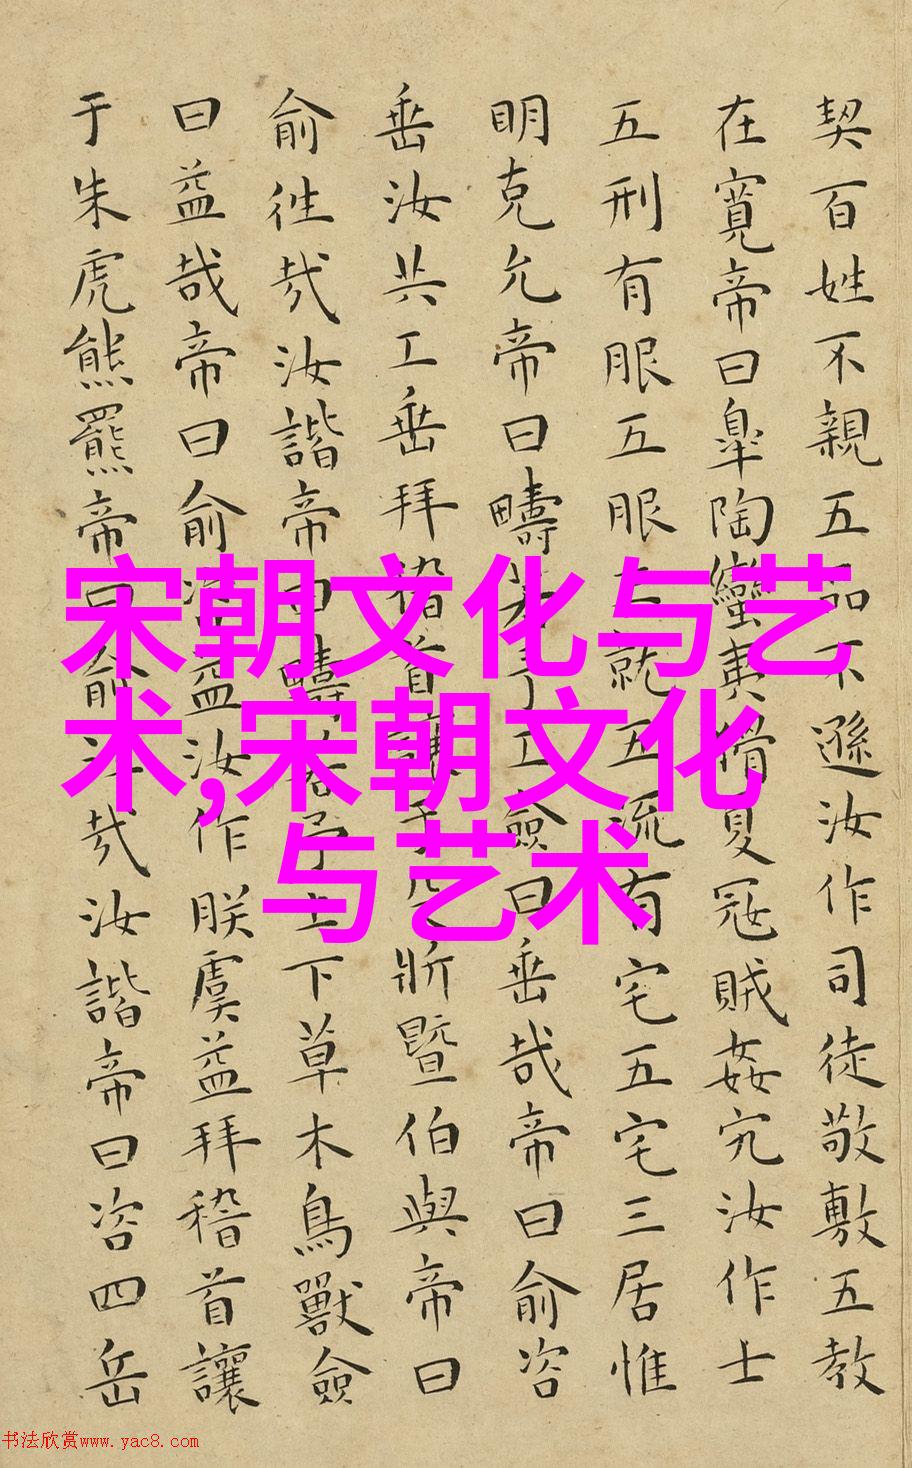 契百姓不親五品不遜汝作司徒敬敷五教
在寬帝曰皐陶蠻夷猾夏冦賊姦宄汝作士
五刑有服五服三就五流有宅五宅三居惟
明克允帝曰疇若予工僉曰垂哉帝曰俞咨
垂汝共工垂拜稽首讓于殳斨暨伯與帝曰
俞往哉汝諧帝曰疇若予上下草木鳥獸僉
曰益哉帝曰俞咨益汝作朕虞益拜稽首讓
于朱虎熊羆帝曰俞往哉汝諧帝曰咨四岳
宋朝文化与艺
术,宋朝文化
与艺术
书法欣赏www.yac8.com